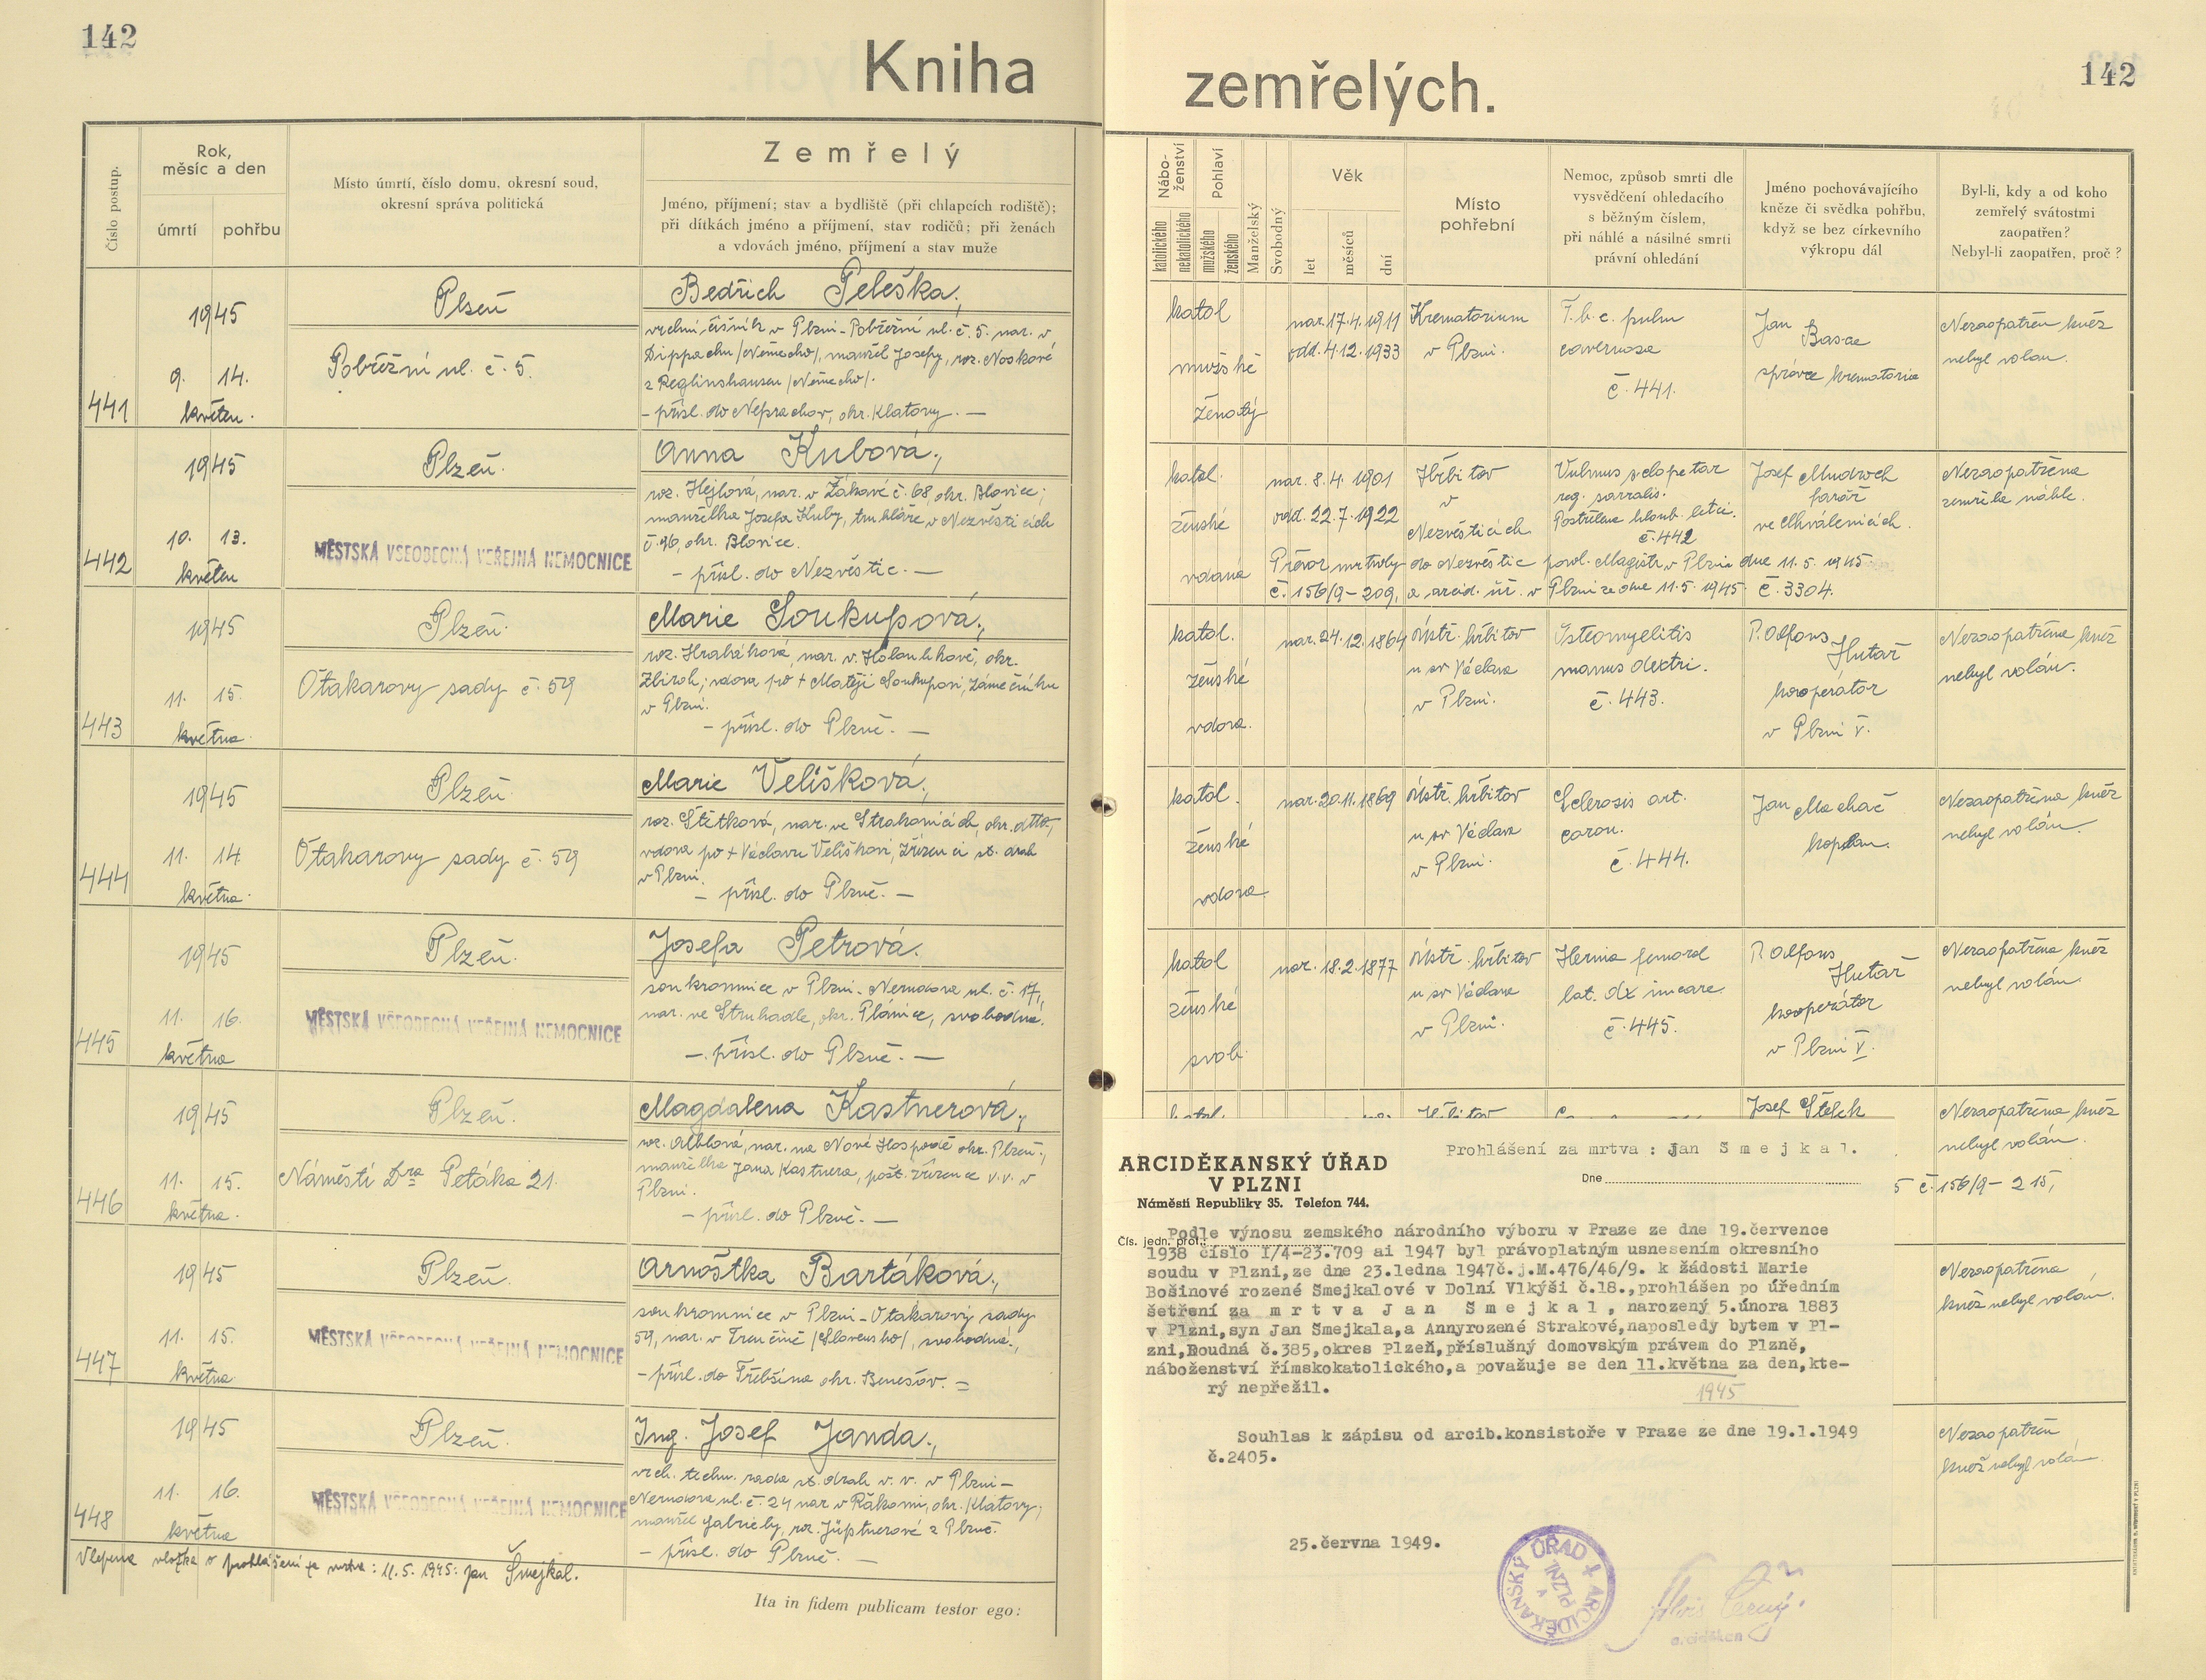 142
Kniha
zemřelých.
142
Číslo postup.
Rok,
měsíc a den
úmrtí
pohřbu
Místo úmrtí, číslo domu, okresní soud,
okresní správa politická
Zemřelý
Jméno, příjmení; stav a bydliště (při chlapcích rodiště);
při dítkách jméno a příjmení, stav rodičů; při ženách
a vdovách jméno, příjmení a stav muže
Nábo-
ženství
katolického
nekatolického
Pohlaví
mužského
ženského
Manželský
Svobodný
Věk
let
měsíců
dní
Místo
pohřební
Nemoc, způsob smrti dle
vysvědčení ohledacího
s běžným číslem,
při náhlé a násilné smrti
právní ohledání
Jméno pochovávajícího
kněze či svědka pohřbu,
když se bez církevního
výkropu dál
Byl-li, kdy a od koho
zemřelý svátostmi
zaopatřen?
Nebyl-li zaopatřen, proč?
441
1945
9. 14.
květen.
Plzeň
Pobřežní ul. č. 5.
Bedřich Peleška,
vrchní číšník v Plzni-Pobřežní ul. č. 5. nar. v
Dippachu /Německo/, manžel Josefy, roz. Noskové
z Reglinshausen /Německo/.
- přísl. do Neprachov, okr. Klatovy. -
katol
mužské
ženatý
nar. 17.4. 1911
odd. 4.12. 1933
Krematorium
v Plzni.
T.b.c. pulm
cavernosa
č. 441.
Jan
Basae
správce krematoria
Nezaopatřen kněz
nebyl volán.
442
1945
10. 13.
květen
Plzeň.
MĚSTSKÁ VŠEOBECNÁ VEŘEJNÁ NEMOCNICE
Anna Kubová,
roz. Hejlová, nar. v Žákavě č. 68, okr. Blovice;
manželka Josefa Kuby, truhláře v Nezvěsticích
č. 96, okr. Blovice.
- přísl. do Nezvěstic. -
katol.
ženské
vdaná
nar. 8.4. 1901
odd. 22.7. 1922
Hřbitov
v
Nezvěsticích
Vulnus sclopetar
reg. sacralis.
Postřelena hloub. letci.
č. 442
Josef Mudroch
farář
ve Chválenicích.
Nezaopatřena
zemřela náhle.
Převoz mrtvoly do Nezvěstic povol. Magistr. v Plzni dne 11.5. 1945
č. 156/9-209, a arcid. úř. v Plzni ze dne 11.5. 1945. č. 3304.
443
1945
11. 15.
května.
Plzeň.
Otakarovy sady č. 59
Marie Soukupová,
roz. Hrabáková, nar. v Holoubkově, okr.
Zbiroh; vdova po + Matěji Soukupovi, zámečníku
v Plzni.
- přísl. do Plzně. -
katol.
ženské
vdova.
nar. 24.12. 1864
Ústř. hřbitov
u sv Václava
v Plzni.
Osteomyelitis
manus dextri.
č. 443.
P. Alfons
Hutař
kooperátor
v Plzni V.
Nezaopatřena kněz
nebyl volán.
444
1945
11. 14.
května.
Plzeň.
Otakarovy sady č. 59
Marie Velišková,
roz. Štětková, nar. ve Strakonicích, okr. dtto,
vdova po + Václavu Veliškovi, zřízenci st. drah
v Plzni.
- přísl. do Plzně. -
katol.
ženské
vdova
nar. 20.11. 1869
Ústř. hřbitov
u sv Václava
v Plzni.
Sclerosis art.
coron.
č. 444.
Jan Machač
kaplan.
Nezaopatřena kněz
nebyl volán.
445
1945
11. 16.
května
Plzeň.
MĚSTSKÁ VŠEOBECNÁ VEŘEJNÁ NEMOCNICE
Josefa Petrová.
soukromnice v Plzni-Nerudova ul. č. 17,
nar. ve Struhadle, okr. Plánice, svobodná.
- přísl. do Plzně. -
katol
ženské
svob.
nar. 18.2. 1877
Ústř. hřbitov
u sv Václava
v Plzni.
Hernia femoral
lat. dx incarc.
č. 445.
P. Alfons
Hutař
kooperátor
v Plzni V.
Nezaopatřena kněz
nebyl volán
446
1945
11. 15.
května.
Plzeň.
Náměstí Dra Petáka 21.
Magdalena Kastnerová,
roz. Alblová, nar. na Nové Hospodě okr. Plzeň.,
manželka Jana Kastnera, pošt. zřízence v.v. v
Plzni.
- přísl. do Plzně. -
Josef Štělck
Nezaopatřena kněz
nebyl volán.
5 č. 156/9-215,
447
1945
11. 15.
května
Plzeň.
MĚSTSKÁ VŠEOBECNÁ VEŘEJNÁ NEMOCNICE
Arnoštka Bartáková,
soukromnice v Plzni-Otakarovy sady
59, nar. v Trenčíně /Slovensko/, svobodná.,
- přísl. do Třebšína okr. Benešov. =
Nezaopatřena
kněz nebyl volán.
448
1945
11. 16.
května
Plzeň.
MĚSTSKÁ VŠEOBECNÁ VEŘEJNÁ NEMOCNICE
Ing. Josef Janda,
vrch. techn. rada st. drah v. v. v Plzni-
Nerudova ul. č. 24 nar v Řákomi, okr. Klatovy,
manžel Gabriely, roz. Jüptnerové z Plzně.
- přísl. do Plzně. -
Nezaopatřen
kněž nebyl volán
Vlepena vložka o prohlášení za mrtva: 11.5. 1945: Jan Šmejkal.
Ita in fidem publicam testor ego:
ARCIDĚKANSKÝ ÚŘAD
V PLZNI
Náměstí Republiky 35. Telefon 744.
Čís. jedn. prot.:
Prohlášení za mrtva : Jan Š m e j k a l.
Dne
Podle výnosu zemského národního výboru v Praze ze dne 19.července
1938 číslo I/4-23.709 ai 1947 byl právoplatným usnesením okresního
soudu v Plzni,ze dne 23.ledna 1947č.j.M.476/46/9. k žádosti Marie
Bošinové rozené Šmejkalové v Dolní Vlkýši č.18.,prohlášen po úředním
šetření za m r t v a J a n Š m e j k a l , narozený 5.února 1883
v Plzni,syn Jan Šmejkala,a Annyrozené Strakové,naposledy bytem v Pl-
zni,Roudná č.385,okres Plzeň,příslušný domovským právem do Plzně,
náboženství římskokatolického,a považuje se den 11.května za den,kte-
rý nepřežil.
1945
Souhlas k zápisu od arcib.konsistoře v Praze ze dne 19.1.1949
č.2405.
25.června 1949.
ARCIDĚKANSKÝ ÚŘAD
V PLZNI
arciděkan